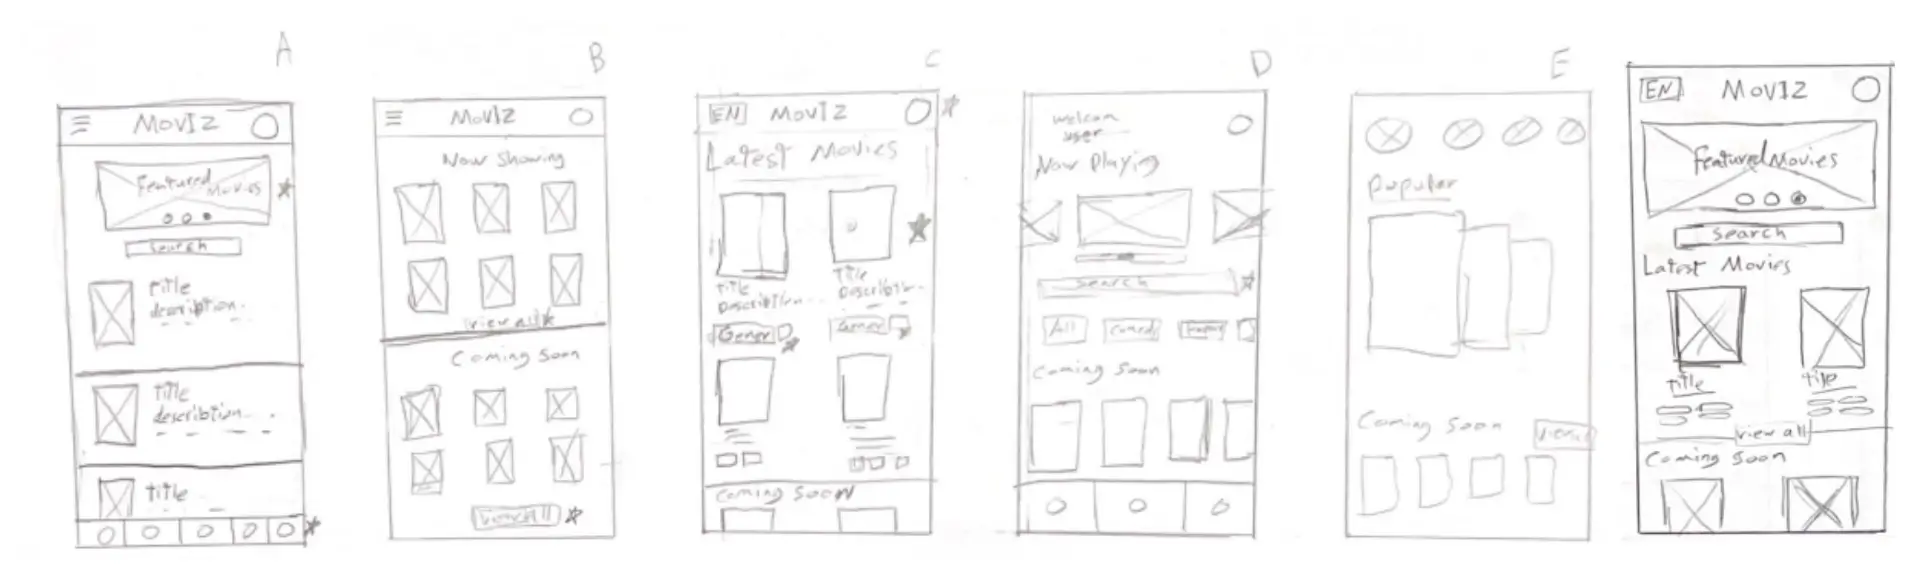 A
MOVIZ
Featured Movies
Search
title
description...
title
description...
title
B
MOVIZ
Now Showing
view all
Coming Soon
view all
C
EN MOVIZ
Latest Movies
title title
Description... Description...
Gener Gener
Coming Soon
D
welcom
user
Now Playing
Search
All Comedy Horror
Coming Soon
E
Popular
Coming Soon
EN MOVIZ
Featured Movies
Search
Latest Movies
title title
view all
Coming Soon